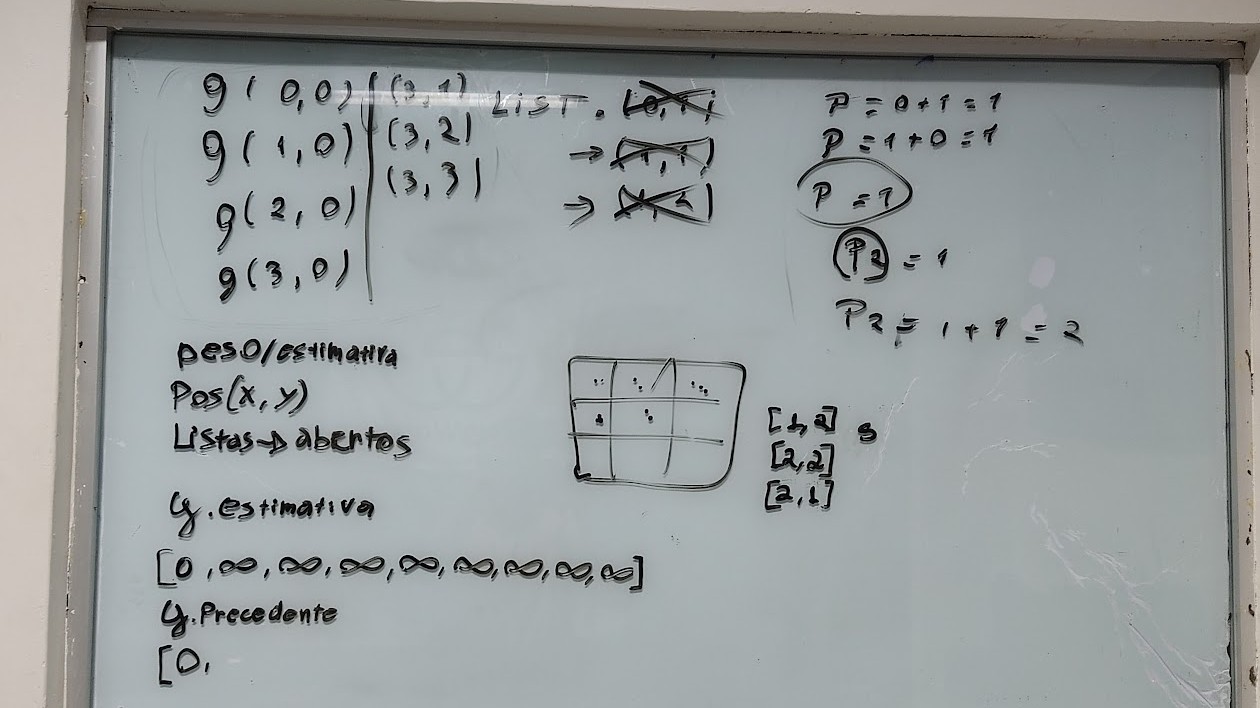 g(0,0)
g(1,0)
g(2,0)
g(3,0)
(3,1)
(3,2)
(3,3)
LIST.
→ (1,1)
→
P = 0+1 = 1
P = 1+0 = 1
P = 1
P2 = 1
P2 = 1+1 = 2
peso/estimativa
Pos(x, y)
Listas→abertos
y.estimativa
[0,∞,∞,∞,∞,∞,∞,∞,∞]
y.Precedente
[0,
[1,2] s
[2,2]
[2,1]